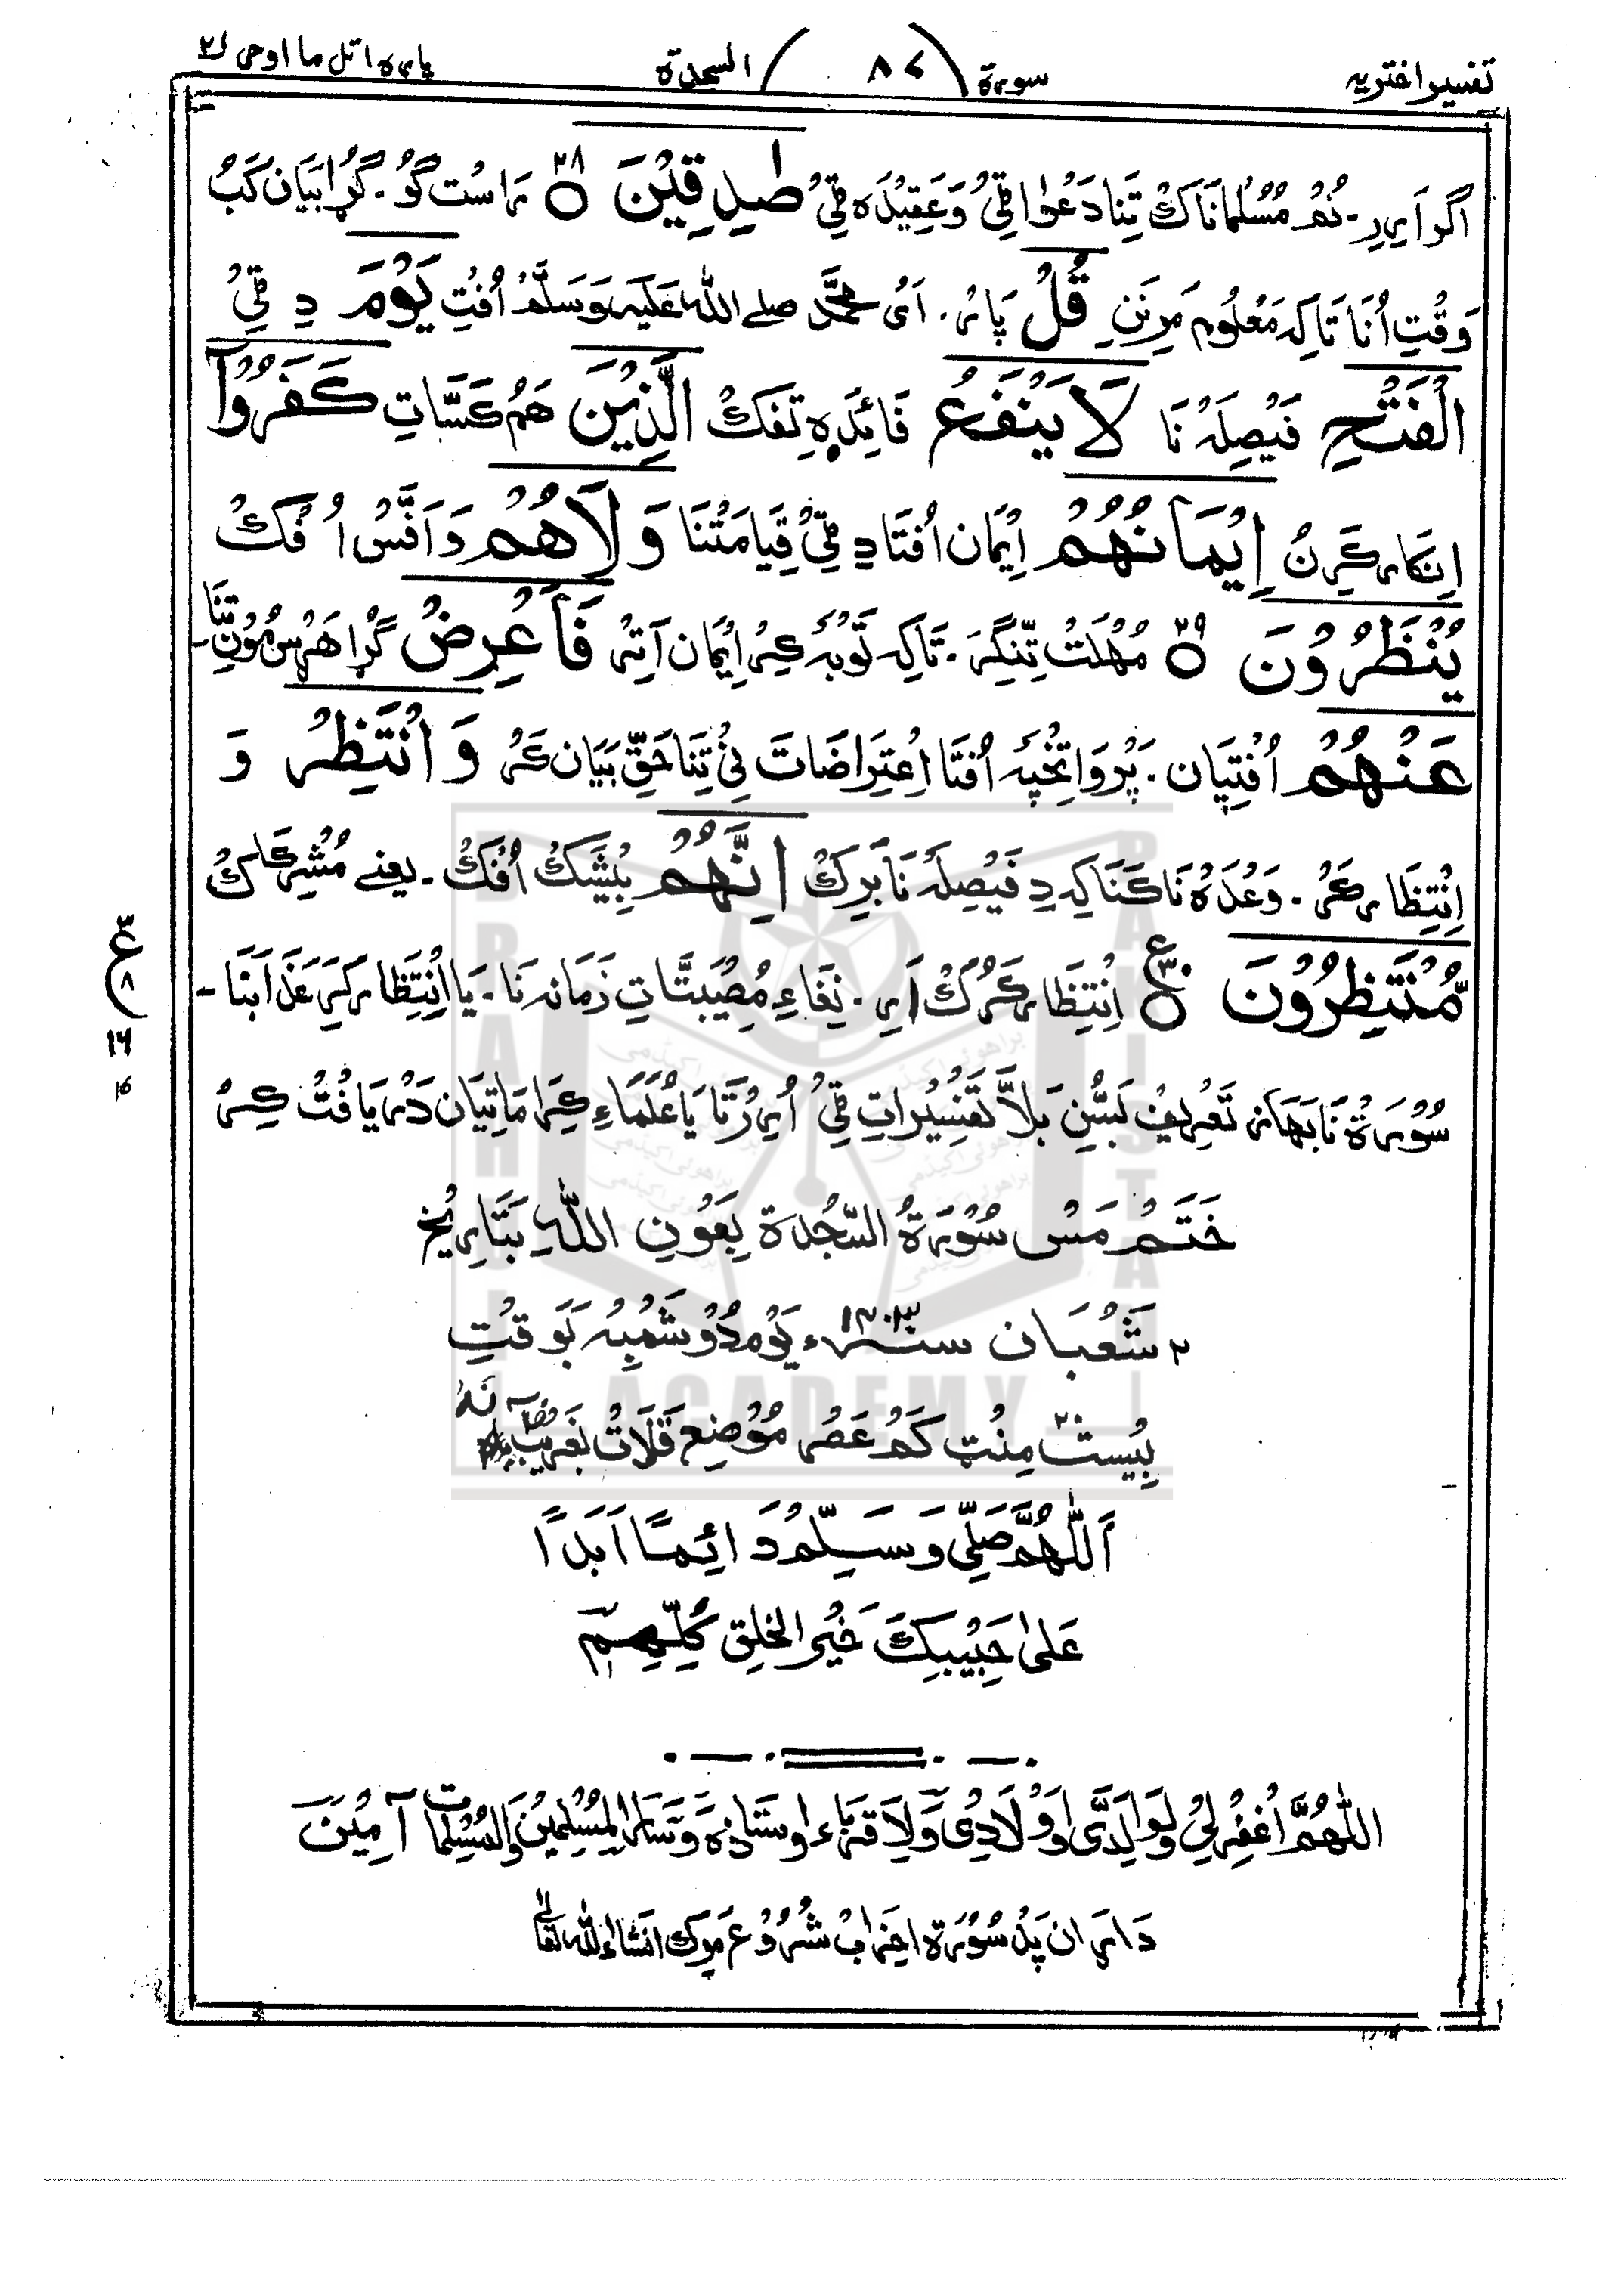 تفسیر اختریہ سورۃ ( ۸۷ ) السجدۃ پارہ اتل ما اوحی ۲۱
اگر اَرِیرِ۔ نُمْ مُسُلمانَاکْ تِنَا دَعْوٰا ٹِیْ وَ عَقِیْدَہ ٹِیْ صٰدِقِیْنَ ۲۸ رَاسْت گُوْ۔ گُڑا بَیَان کَبْ
وَقْتِ اُنَا تَاکِہ مَعْلُوْم مَرِنَنِ قُلْ پَارْ۔ اَیْ مُحَمَّد صلے اللہ عَلَیْہِ وَسَلَّمْ اُفْتِ یَوْمَ دِ ٹِیْ
الْفَتْحِ فَیْصِلَہْ نَا لَا یَنْفَعُ فَائِدَہ تِفَکْ الَّذِیْنَ ھَمْ کَسَّاتِ کَفَرُوْٓا
اِنکَار کَرِنْ اِیْمَانُهُمْ اِیْمَان اُفْتَا دِ ٹِیْ قِیَامَتْنَا وَلَاهُمْ وَ اَفَّسْ اُفْکْ
یُنْظَرُوْنَ ۲۹ مُهْلَتْ تِنِّنگَرَ۔ تَاکِہ تَوْبَہ کِرْ اِیْمَان اَتِرْ فَاَعْرِضْ گُڑا ھَرْس مُوْنِ تِنَا۔
عَنْهُمْ اُفْتِیَان۔ پَرْوَا تِخْپَہ اُفْتَا اِعْتِرَاضَاتَ نِیْ تِنَا حَقِّ بَیَان کَرْ وَانْتَظِرْ وَ
اِنْتِظَار کَرْ۔ وَعْدَہْ نَا کَنَا کِہ دِ فَیْصِلَہْ نَا بَرِکْ اِنَّهُمْ بِیْشَکْ اُفْکْ۔ یعنے مُشْرِکَاکْ
مُّنْتَظِرُوْنَ ۳۰ ع اِنْتِظَار کَرُکْ اَرِ۔ نِغَاءِ مُصِیْبَتَّاتِ زَمَانَہ نَا۔ یَا اِنْتِظَار کَرِ عَذَابْنَا۔
ع ۳ ۸ ۱۶
سُوْرَۃ نَا بَھَاز تَعْرِیْف بَسُّنِ بَلَّا تَفْسِیْرَاتِ ٹِیْ اُرِ رْتَا یَا عُلَمَاءِ کِرَامَاتِیَان دَرْیَافْتْ کِرْ
خَتَمْ مَسْ سُوْرَۃُ السَّجْدَۃ بِعَوْنِ اللّٰہِ بَتَارِیْخ
۲ شَعْبَان سنہ ۱۴۰۳ء یَوْمْ دُوْ شَمْبِہْ بَوَقْتِ
بِیْسْت ۲۰ مِنْٹ کَمْ عَصْر مُوْضِع قَلَاتْ بَغَرِیْب
اَللّٰهُمَّ صَلِّی وَ سَلِّمْ دَائِمًا اَبَدًا
عَلٰی حَبِیْبِکَ خَیْرِ الخلِقِ کُلِّهِمٖ
اللّٰهُمَّ اغْفِرْلِیْ وَلِوَالِدَیَّ وَ اَوْلَادِیْ وَ لِاَقْرَبَاءِ وَ اُسْتَاذِہ وَ سَائِرِ الْمُسْلِمِیْنَ وَالْمُسْلِمَاتِ آمِیْنَ
دَارَان پَدْ سُوْرَۃ احزاب شُرُوْع مَرِکْ انشاءاللہ تعالیٰ